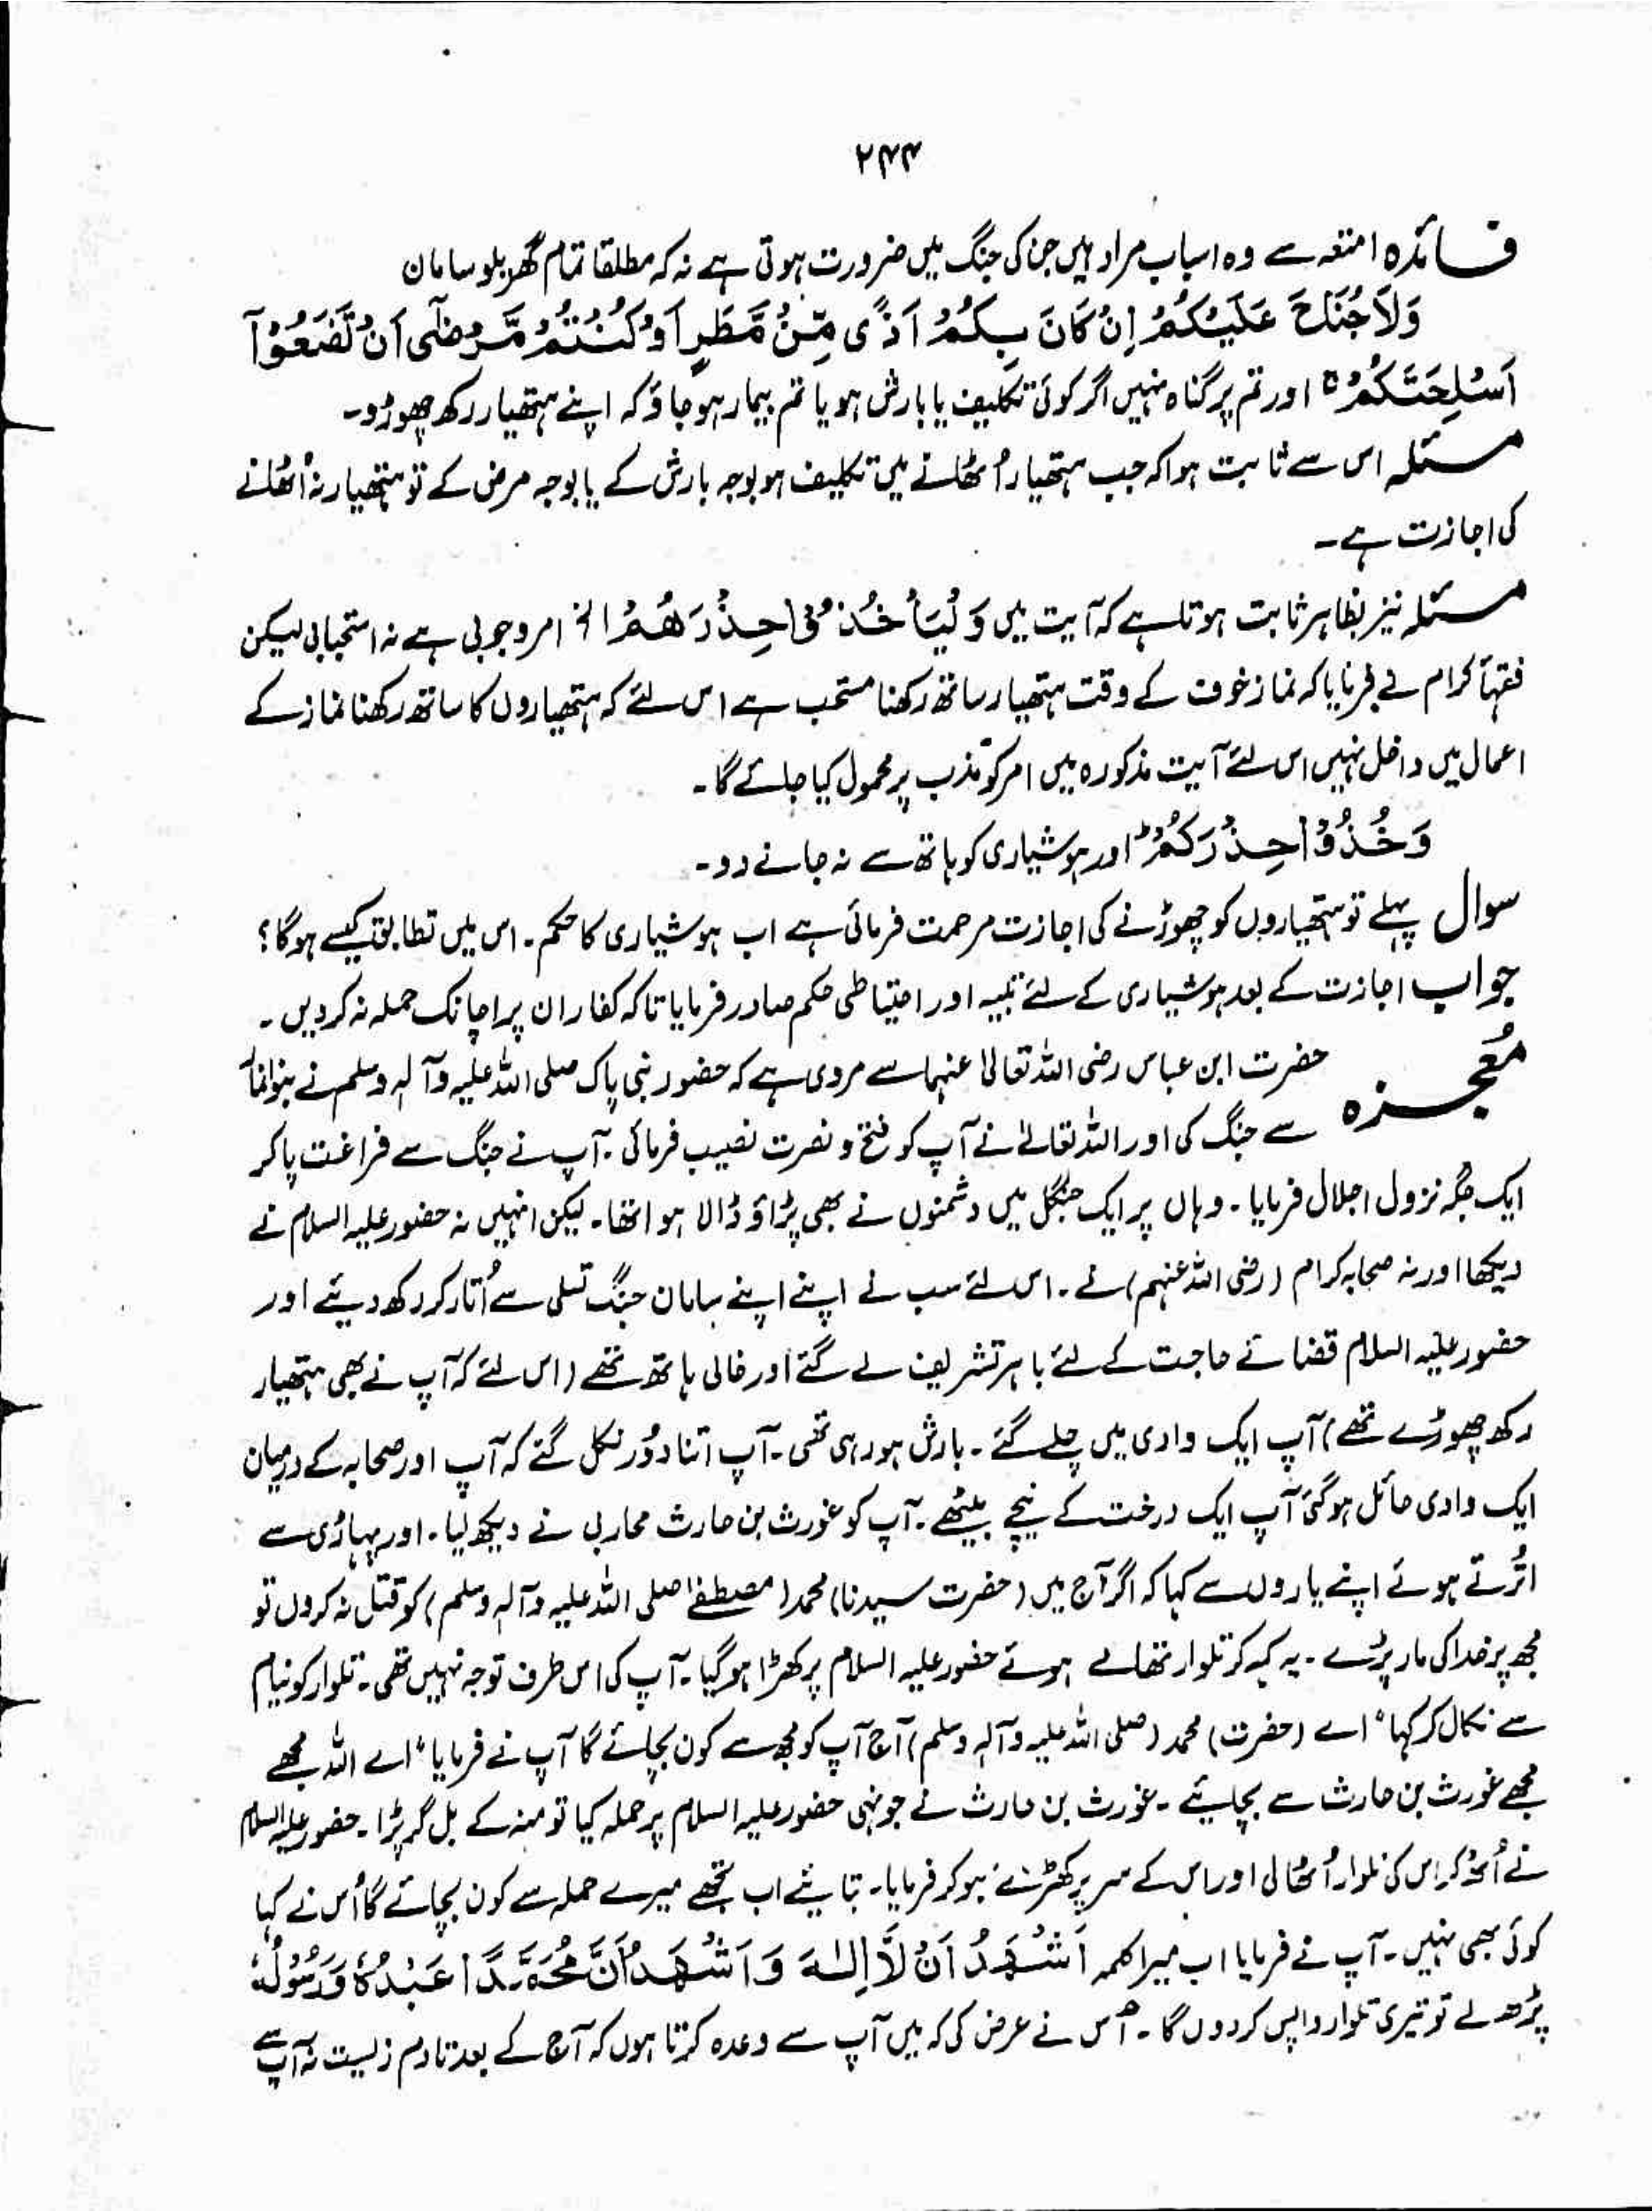 ۲۴۴
فائدہ امتعہ سے وہ اسباب مراد ہیں جن کی جنگ میں ضرورت ہوتی ہے نہ کہ مطلقا تمام گھریلو سامان
وَلَا جُنَاحَ عَلَيْكُمْ اِنْ كَانَ بِكُمْ اَذًى مِّنْ مَّطَرٍ اَوْ كُنْتُمْ مَّرْضٰٓى اَنْ تَضَعُوْٓا
اَسْلِحَتَكُمْ ۚ اور تم پر گناہ نہیں اگر کوئی تکلیف یا بارش ہو یا تم بیمار ہو جاؤ کہ اپنے ہتھیار رکھ چھوڑو۔
مسئلہ اس سے ثابت ہوا کہ جب ہتھیار اُٹھانے میں تکلیف ہو بوجہ بارش کے یا بوجہ مرض کے تو ہتھیار نہ اُٹھانے
کی اجازت ہے۔
مسئلہ نیز بظاہر ثابت ہوتا ہے کہ آیت میں وَلْيَأْخُذُوْا حِذْرَهُمْ الخ امر وجوبی ہے نہ استحبابی لیکن
فقہأ کرام نے فرمایا کہ نماز خوف کے وقت ہتھیار ساتھ رکھنا مستحب ہے اس لئے کہ ہتھیاروں کا ساتھ رکھنا نماز کے
اعمال میں داخل نہیں اس لئے آیت مذکورہ میں امر کو ندب پر محمول کیا جائے گا۔
وَخُذُوْا حِذْرَكُمْ ؕ اور ہوشیاری کو ہاتھ سے نہ جانے دو۔
سوال پہلے تو ہتھیاروں کو چھوڑنے کی اجازت مرحمت فرمائی ہے اب ہوشیاری کا حکم۔ اس میں تطابق کیسے ہوگا؟
جواب اجازت کے بعد ہوشیاری کے لئے تنبیہ اور احتیاطی حکم صادر فرمایا تاکہ کفار ان پر اچانک حملہ نہ کردیں۔
مُعجزہ حضرت ابن عباس رضی اللہ تعالیٰ عنہما سے مروی ہے کہ حضور نبی پاک صلی اللہ علیہ وآلہ وسلم نے بنو انمار
سے جنگ کی اور اللہ تعالےٰ نے آپ کو فتح و نصرت نصیب فرمائی۔ آپ نے جنگ سے فراغت پا کر
ایک جگہ نزول اجلال فرمایا۔ وہاں پر ایک جنگل میں دشمنوں نے بھی پڑاؤ ڈالا ہوا تھا۔ لیکن انہیں نہ حضور علیہ السلام نے
دیکھا اور نہ صحابہ کرام (رضی اللہ عنہم) نے۔ اس لئے سب نے اپنے اپنے سامان جنگ تسلی سے اُتار کر رکھ دیئے اور
حضور علیہ السلام قضائے حاجت کے لئے باہر تشریف لے گئے اور خالی ہاتھ تھے (اس لئے کہ آپ نے بھی ہتھیار
رکھ چھوڑے تھے) آپ ایک وادی میں چلے گئے۔ بارش ہو رہی تھی۔ آپ اتنا دُور نکل گئے کہ آپ اور صحابہ کے درمیان
ایک وادی حائل ہوگئی آپ ایک درخت کے نیچے بیٹھے۔ آپ کو غورث بن حارث محاربی نے دیکھ لیا۔ اور پہاڑی سے
اُترتے ہوئے اپنے یاروں سے کہا کہ اگر آج میں (حضرت سیدنا) محمد (مصطفےٰ صلی اللہ علیہ وآلہ وسلم) کو قتل نہ کروں تو
مجھ پر خدا کی مار پڑے۔ یہ کہہ کر تلوار تھامے ہوئے حضور علیہ السلام پر کھڑا ہوگیا۔ آپ کی اس طرف توجہ نہیں تھی۔ تلوار کو نیام
سے نکال کر کہا "اے (حضرت) محمد (صلی اللہ علیہ وآلہ وسلم) آج آپ کو مجھ سے کون بچائے گا آپ نے فرمایا "اے اللہ مجھے
مجھے غورث بن حارث سے بچایئے۔ غورث بن حارث نے جونہی حضور علیہ السلام پر حملہ کیا تو منہ کے بل گر پڑا۔ حضور علیہ السلام
نے اُٹھ کر اس کی تلوار اُٹھالی اور اس کے سر پر کھڑے ہو کر فرمایا۔ بتایئے اب تجھے میرے حملہ سے کون بچائے گا اُس نے کہا
کوئی بھی نہیں۔ آپ نے فرمایا اب میرا کلمہ اَشْهَدُ اَنْ لَّا اِلٰهَ وَ اَشْهَدُ اَنَّ مُحَمَّدًا عَبْدُهٗ وَرَسُوْلُهٗ
پڑھ لے تو تیری تلوار واپس کردوں گا۔ اُس نے عرض کی کہ میں آپ سے وعدہ کرتا ہوں کہ آج کے بعد تادم زیست نہ آپ سے